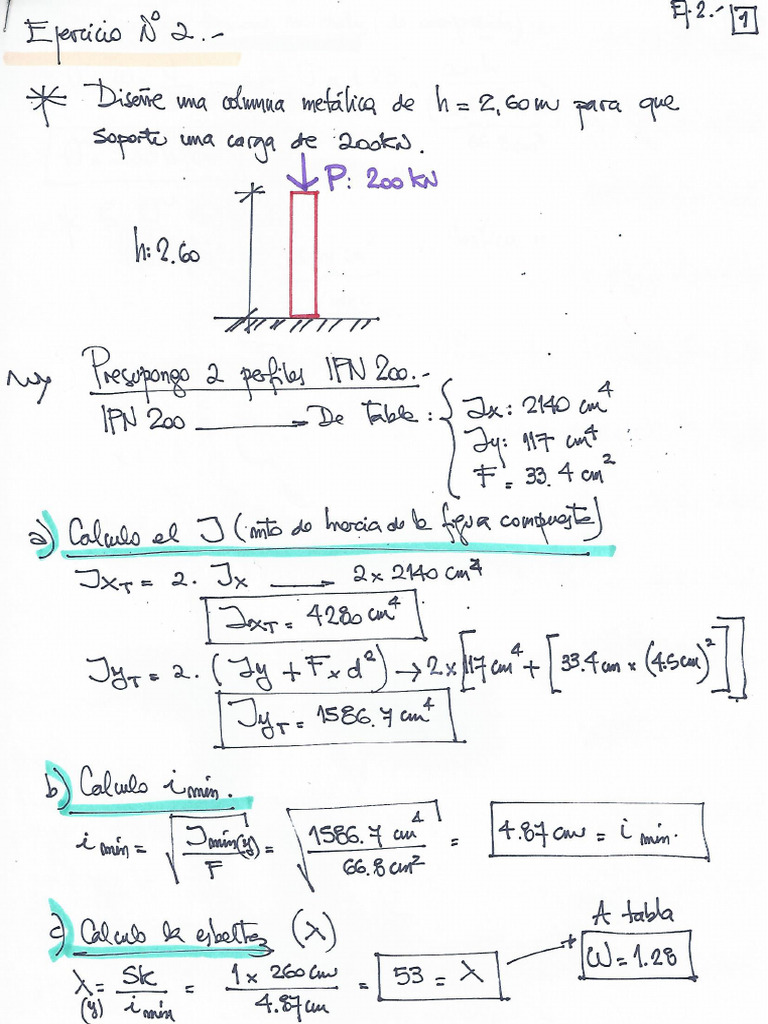 Ej. 2.- 1
Ejercicio Nº 2.-
* Diseñe una columna metálica de h = 2,60m para que
soporte una carga de 200kN.
P: 200 kN
h: 2.60
Presupongo 2 perfiles IPN 200.-
IPN 200 → De tabla: { Jx: 2140 cm⁴
Jy: 117 cm⁴
F = 33.4 cm²
a) Calculo el J (mto de Inercia de la figura compuesta)
JxT = 2 . Jx → 2 x 2140 cm⁴
JxT = 4280 cm⁴
JyT = 2 . (Jy + F x d²) → 2 x [117 cm⁴ + [33.4 cm x (4.5 cm)²]]
JyT = 1586.7 cm⁴
b) Calculo i mín.
i mín = √(Jmín(y) / F) = √(1586.7 cm⁴ / 66.8 cm²) = 4.87 cm = i mín.
c) Calculo la esbeltez (λ)
A tabla
λ(y) = Sk / i mín = 1 x 260 cm / 4.87 cm = 53 = λ → ω = 1.28